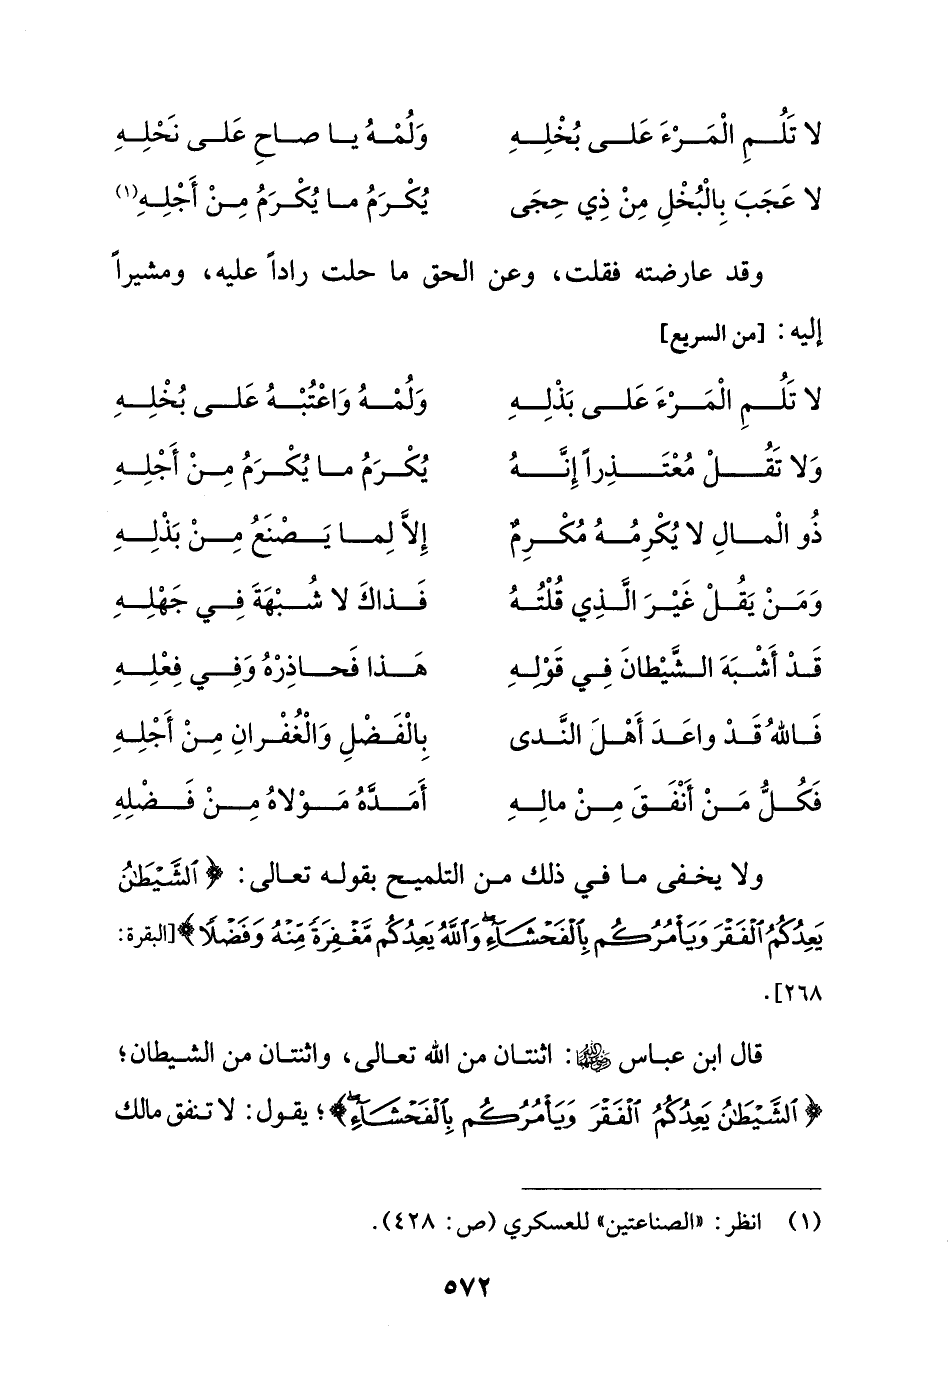 لا تَلُـمِ الْمَـرْءَ عَلَـى بُخْلِـهِ وَلُمْـهُ يـا صـاحِ عَلَـى نَخْلِـهِ
لا عَجَبَ بِالْبُخْلِ مِنْ ذِي حِجَى يُكْـرَمُ مـا يُكْـرَمُ مِـنْ أَجْلِـهِ(١)
وقد عارضته فقلت، وعن الحق ما حلت راداً عليه، ومشيراً
إليه: [من السريع]
لا تَلُـمِ الْمَـرْءَ عَلَـى بَذْلِـهِ وَلُمْـهُ وَاعْتُبْـهُ عَلَـى بُخْلِـهِ
وَلا تَقُـلْ مُعْتَـذِراً إِنَّـهُ يُكْـرَمُ مـا يُكْـرَمُ مِـنْ أَجْلِـهِ
ذُو الْمـالِ لا يُكْرِمُـهُ مُكْـرِمٌ إِلاَّ لِمـا يَـصْنَعُ مِـنْ بَذْلِـهِ
وَمَـنْ يَقُـلْ غَيْـرَ الَّـذِي قُلْتُـهُ فَـذاكَ لا شُـبْهَةَ فِـي جَهْلِـهِ
قَـدْ أَشْبَهَ الـشَّيْطانَ فِـي قَوْلِـهِ هَـذا فَحـاذِرْهُ وَفِـي فِعْلِـهِ
فَـاللهُ قَـدْ واعَـدَ أَهْـلَ النَّـدى بِالْفَـضْلِ وَالْغُفْـرانِ مِـنْ أَجْلِـهِ
فَكُـلُّ مَـنْ أَنْفَـقَ مِـنْ مالِـهِ أَمَـدَّهُ مَـوْلاهُ مِـنْ فَـضْلِهِ
ولا يخفـى مـا فـي ذلك مـن التلميـح بقولـه تعـالى: ﴿ ٱلشَّيْطَٰنُ
يَعِدُكُمُ ٱلْفَقْرَ وَيَأْمُرُكُم بِٱلْفَحْشَآءِۖ وَٱللَّهُ يَعِدُكُم مَّغْفِرَةً مِّنْهُ وَفَضْلًا ﴾ [البقرة:
٢٦٨].
قال ابن عبـاس ﵄: اثنتـان من الله تعـالى، واثنتـان من الشيطان؛
﴿ ٱلشَّيْطَٰنُ يَعِدُكُمُ ٱلْفَقْرَ وَيَأْمُرُكُم بِٱلْفَحْشَآءِۖ ﴾؛ يقول: لا تنفق مالك
(١) انظر: «الصناعتين» للعسكري (ص: ٤٢٨).
٥٧٢